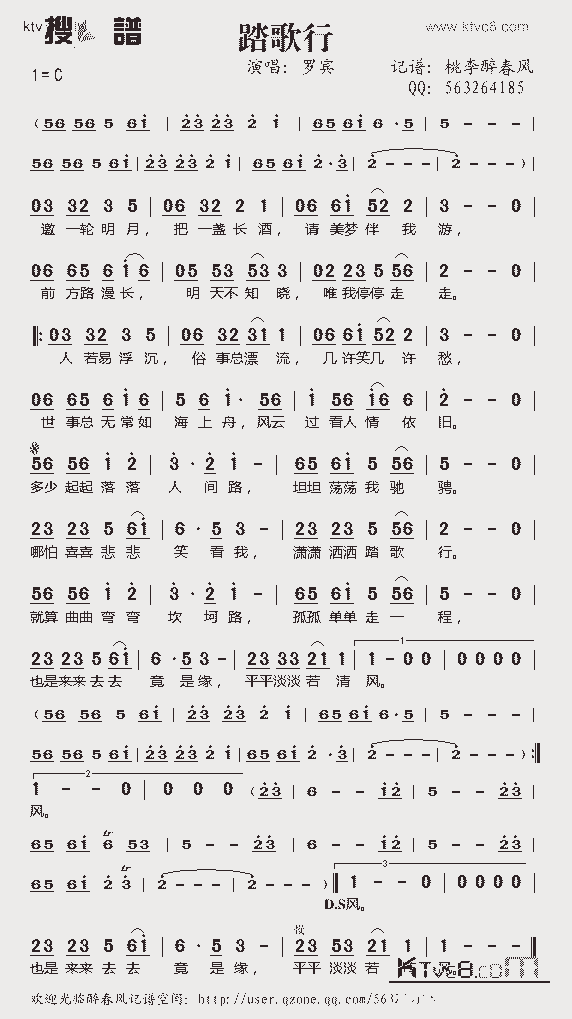 ktv 搜 譜
踏歌行
www.ktvc8.com
演唱：罗宾
记谱：桃李醉春风
1=C
QQ：563264185
（56 56 5 6i | 23 23 2 i | 65 6i 6 ·5 | 5 - - - |
56 56 5 6i | 23 23 2 i | 65 6i 2·3 | 2 - - - | 2 - - - ）|
03 32 3 5 | 06 32 2 1 | 06 6i 52 2 | 3 - - 0 |
邀 一轮 明 月， 把 一盏 长 酒， 请 美梦 伴 我 游，
06 65 6 i6 | 05 53 53 3 | 02 23 5 56 | 2 - - 0 |
前 方路 漫 长， 明 天不 知 晓， 唯 我停停 走 走。
‖: 03 32 3 5 | 06 32 31 1 | 06 6i 52 2 | 3 - - 0 |
人 若易 浮 沉， 俗 事总漂 流， 几 许笑几 许 愁，
06 65 6 i 6 | 5 6 i· 56 | i 56 i6 6 | 2 - - 0 |
世 事总 无 常 如 海 上 舟，风云 过 看人 情 依 旧。
56 56 i 2 | 3 · 2 i - | 65 6i 5 56 | 5 - - 0 |
多少 起起 落 落 人 间 路， 坦坦 荡荡 我 驰 骋。
23 23 5 6i | 6 · 5 3 - | 23 23 5 56 | 2 - - 0 |
哪怕 喜喜 悲 悲 笑 看 我， 潇潇 洒洒 踏 歌 行。
56 56 i 2 | 3 · 2 i - | 65 6i 5 56 | 5 - - 0 |
就算 曲曲 弯 弯 坎 坷 路， 孤孤 单单 走 一 程，
1
23 23 5 6i | 6 ·5 3 - | 23 33 21 1 | 1 - 0 0 | 0 0 0 0 |
也是来来 去 去 竟 是 缘， 平平淡淡 若 清 风。
（56 56 5 6i | 23 23 2 i | 65 6i 6·5 | 5 - - - |
56 56 5 6i | 23 23 2 i | 65 6i 2 ·3 | 2 - - - | 2 - - - ）:‖
2
1 - - 0 | 0 0 0 （23 | 6 - - i2 | 5 - - 23 |
风。
65 6i 6 53 | 5 - - 23 | 6 - - i2 | 5 - - 23 |
tr
tr
3
65 6i 2 3 | 2 - - - | 2 - - - ）‖ 1 - - 0 | 0 0 0 0 |
D.S风。
23 23 5 6i | 6 · 5 3 - | 23 53 21 1 | 1 - - - ‖
也是 来来 去 去 竟 是 缘， 平平 淡淡 若
KTvc8.com
欢迎光临醉春风记谱空间：http://user.qzone.qq.com/563